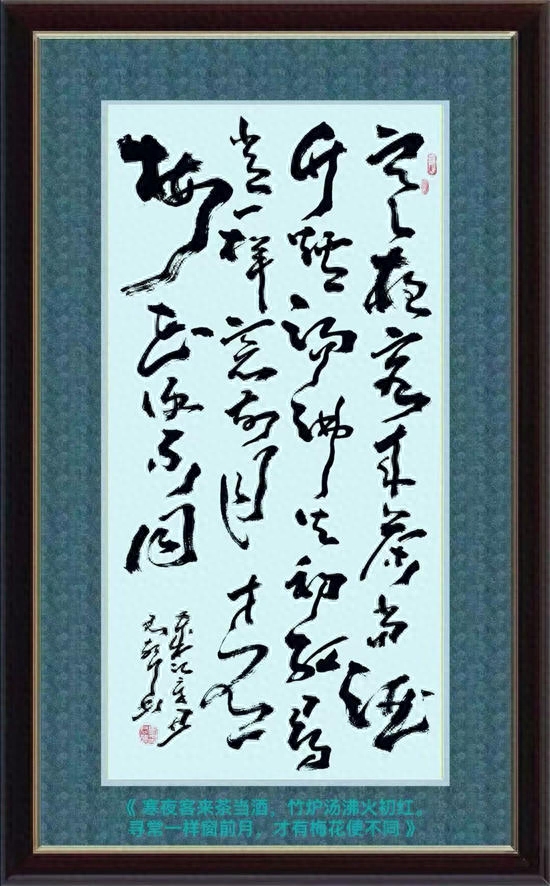 寒夜客来茶当酒
竹炉汤沸火初红寻
常一样窗前月才有
梅花便不同
《寒夜客来茶当酒,竹炉汤沸火初红。
寻常一样窗前月,才有梅花便不同》